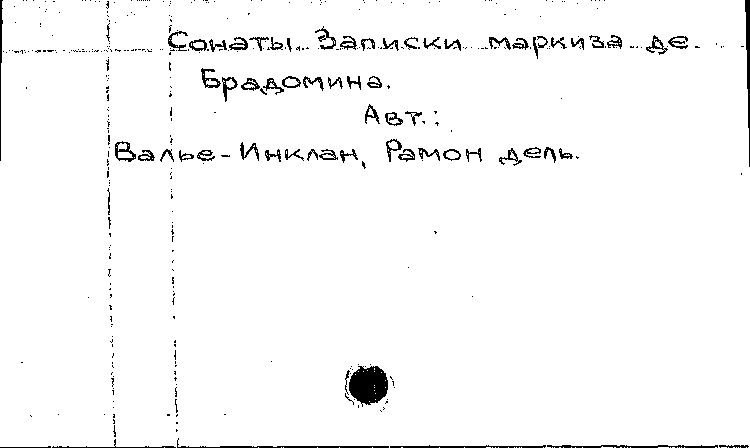 Сонаты. Записки маркиза де
Брадомина.
Авт.:
Валье-Инклан, Рамон дель.